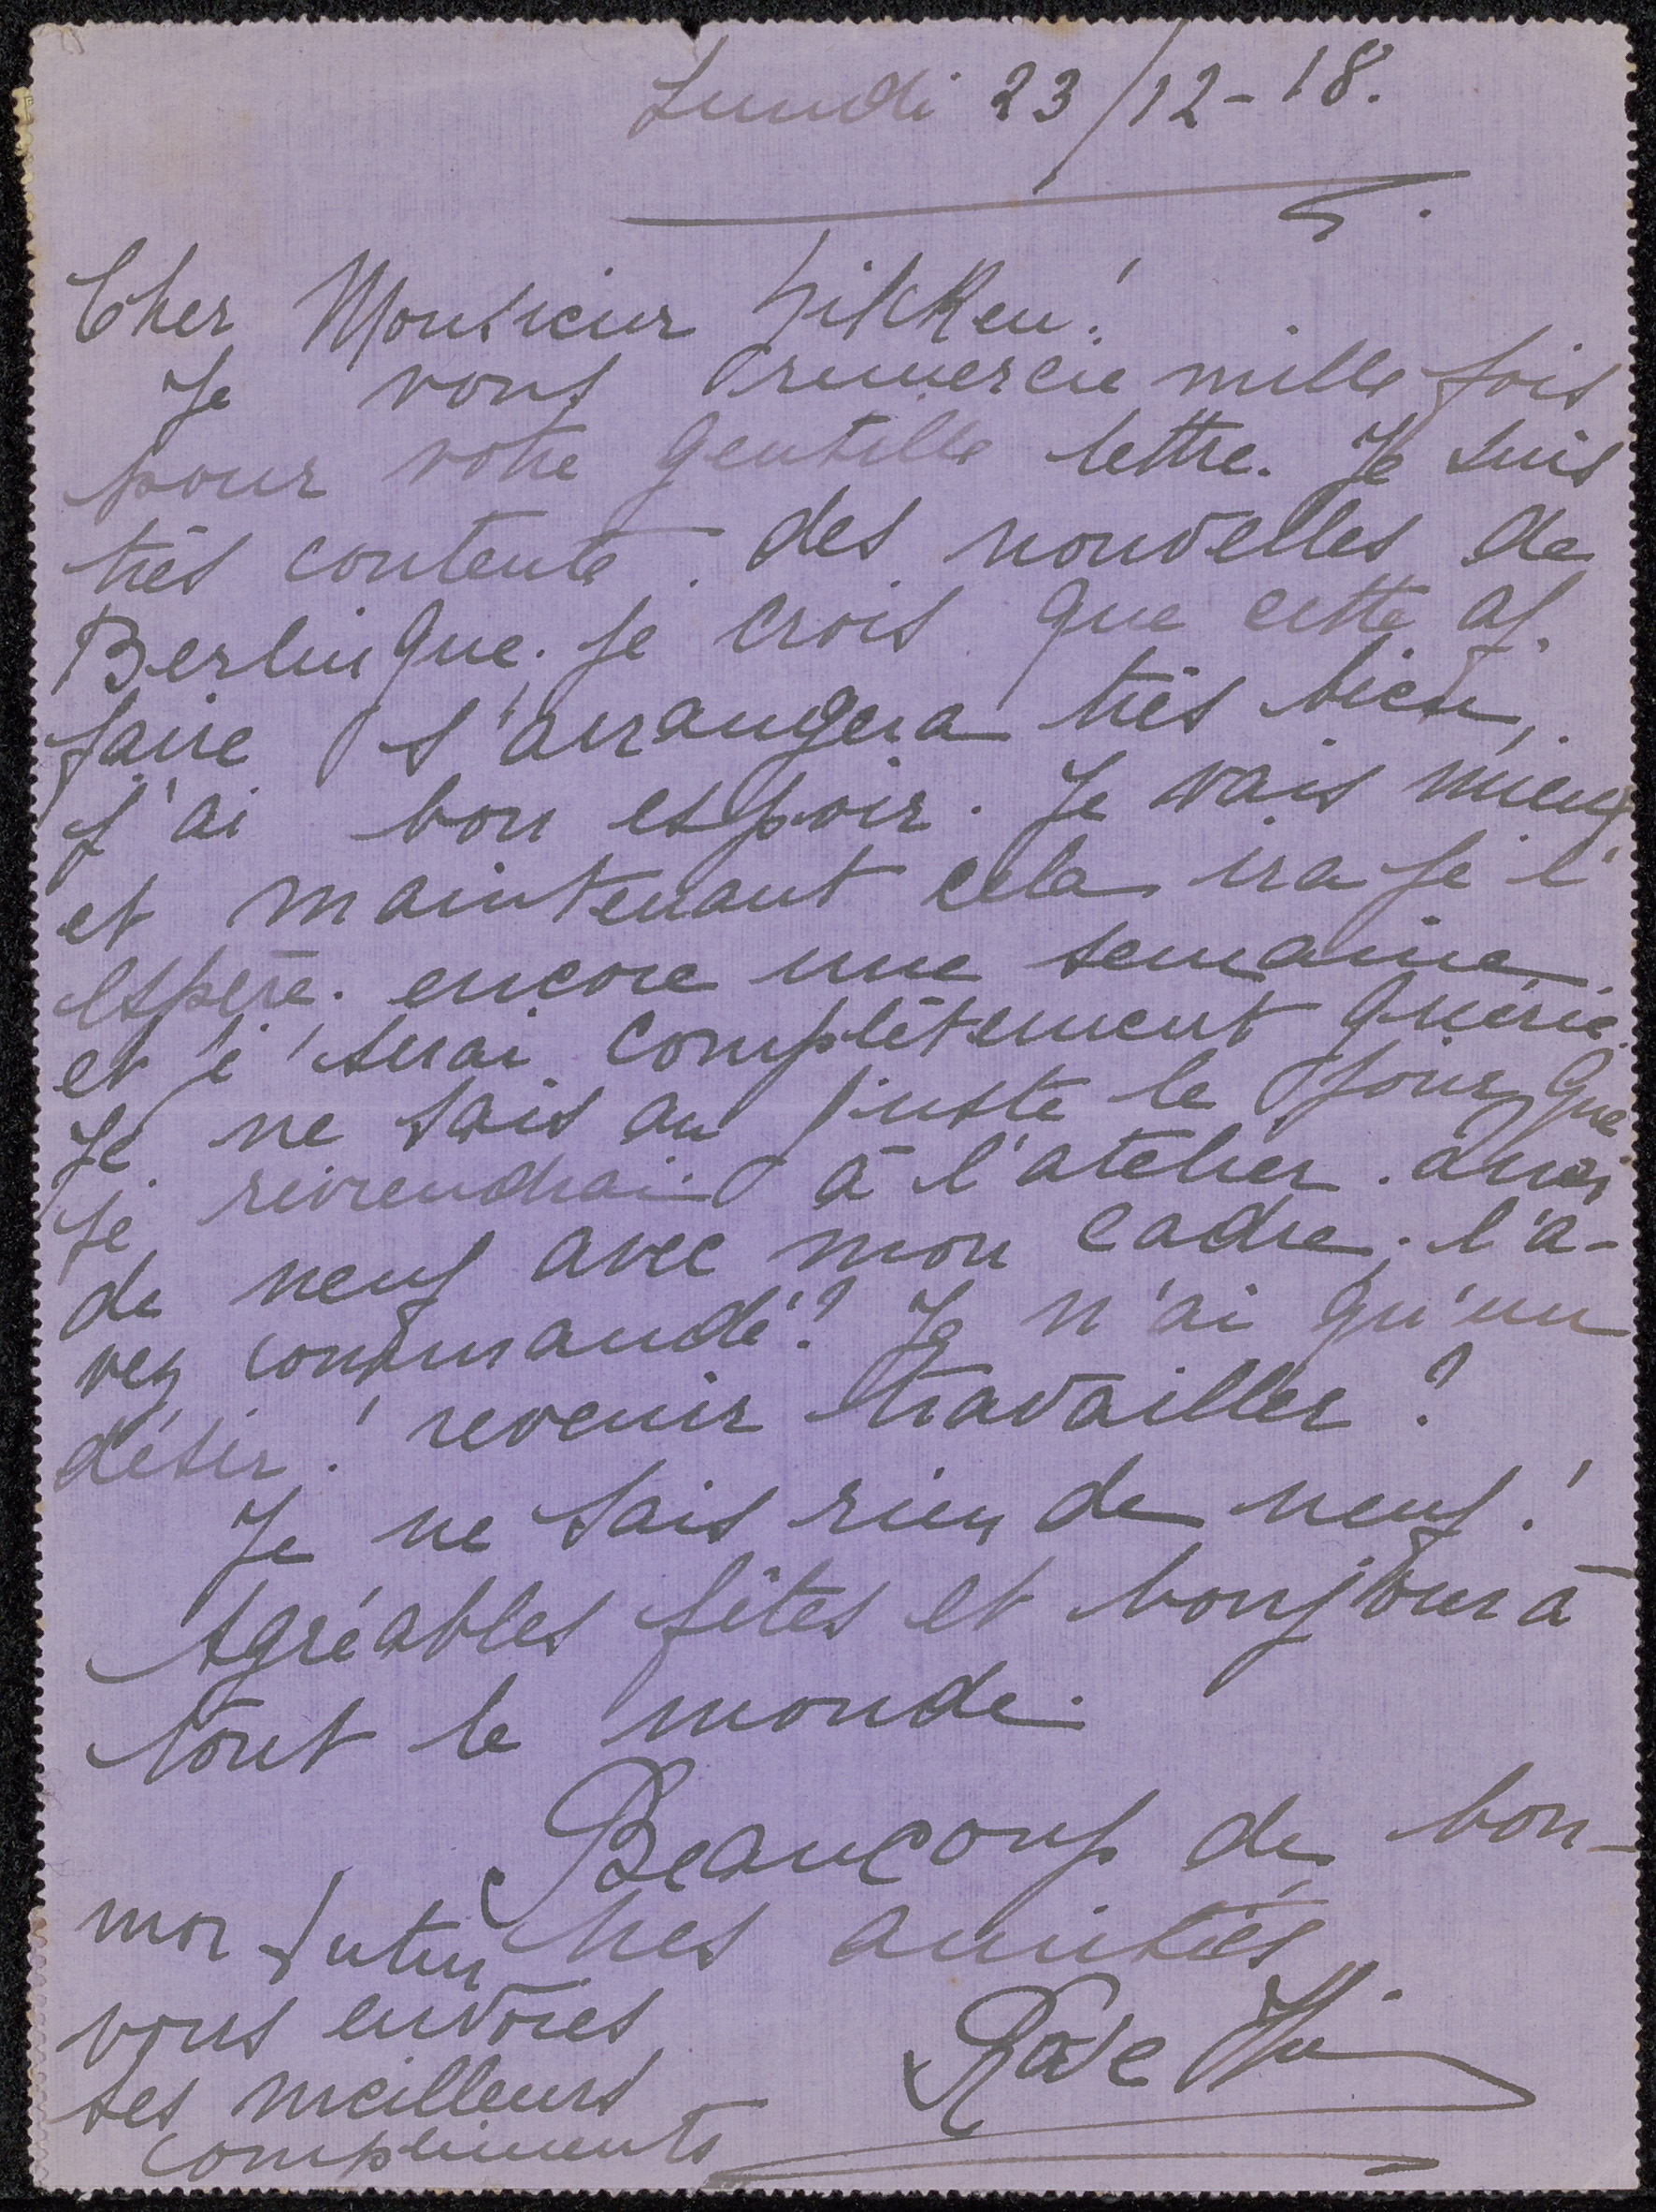 Lundi 23/12-18.
Cher Monsieur Gikkeu!
Je vous remercie mille fois
pour votre gentille lettre. Je suis
très contente. des nouvelles de
Berlin que. je crois que cette af-
faire s'arrangera très bien,
j'ai bon espoir. Je vais mieux
et maintenant cela ira je l'
espère. encore une semaine
et j'serai complètement guérie.
Je ne sais au juste le jour que
je reviendrai à l'atelier.
de neuf avec mon cadre. l'a-
vez commandé? Je n'ai qu'un
désir! revenir travailler?
Je ne sais rien de neuf!
Agréables fêtes et bonjour à
tout le monde.
Beaucoup de bon-
nes amitiés
Rose
mon futur
vous envoies
ses meilleurs
compliments